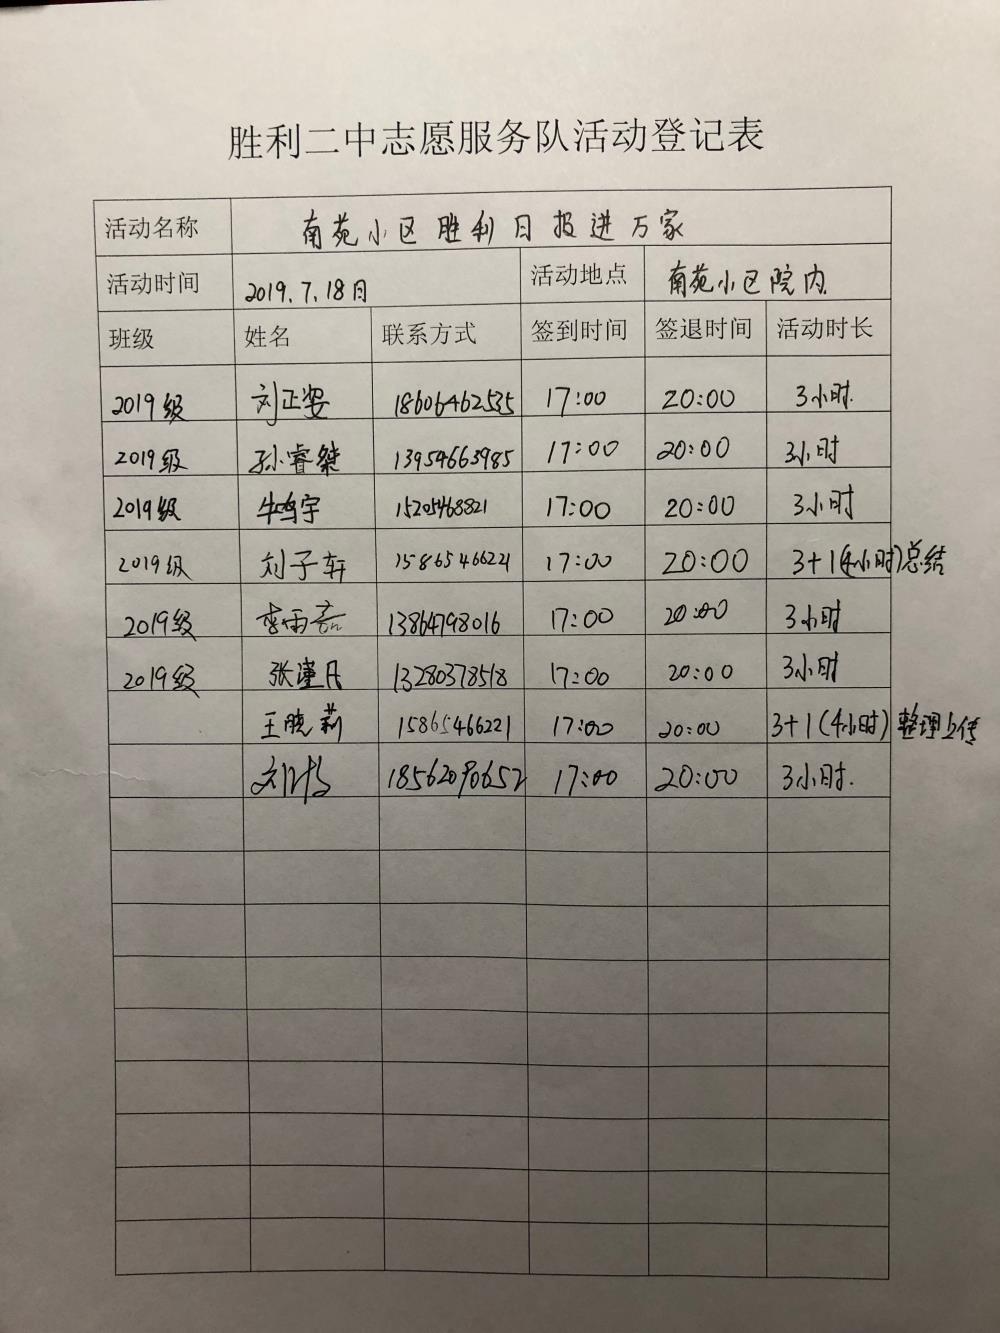 胜利二中志愿服务队活动登记表
活动名称 南苑小区胜利日报进万家
活动时间 2019.7.18日 活动地点 南苑小区院内
班级 姓名 联系方式 签到时间 签退时间 活动时长
2019级 刘正姿 18606462535 17:00 20:00 3小时.
2019级 孙睿桀 13954663985 17:00 20:00 3小时
2019级 牛鸣宇 15205468821 17:00 20:00 3小时
2019级 刘子轩 15865466221 17:00 20:00 3+1(4小时)总结
2019级 李雨嘉 13864798016 17:00 20:00 3小时
2019级 张谨凡 13280378518 17:00 20:00 3小时
王晓莉 15865466221 17:00 20:00 3+1(4小时)整理上传
刘 18562090652 17:00 20:00 3小时.